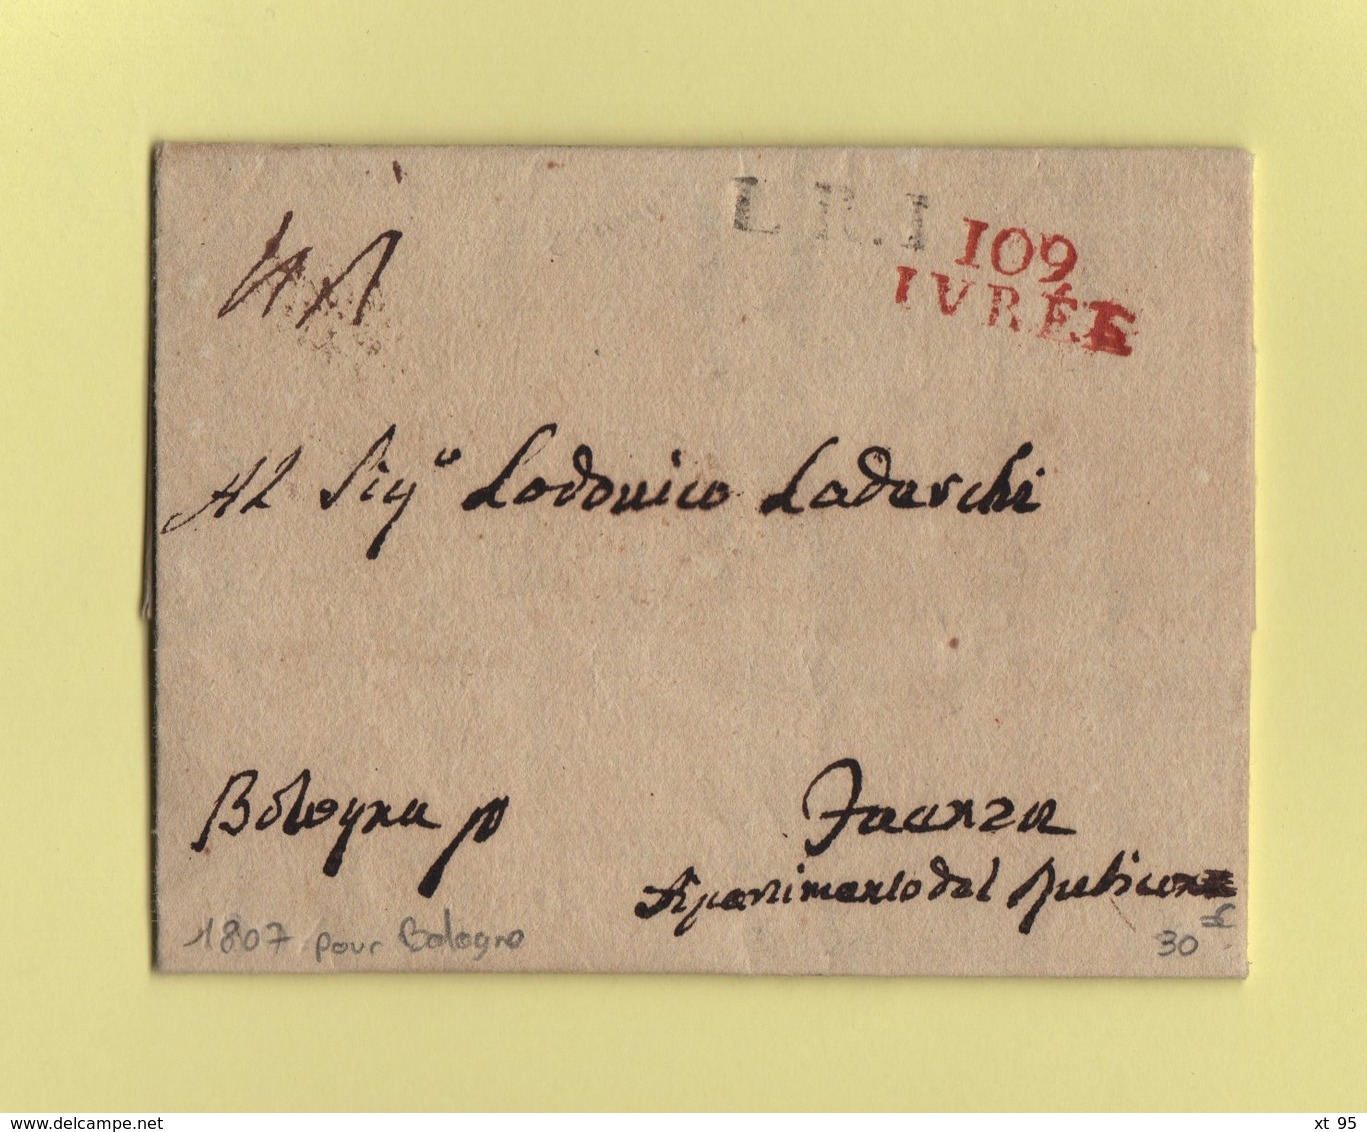 L R.I
109
IVRÉE
Al Sigre Lodovico Ladarchi
Bologna p
Faenza
Apartimento del Rubicone
1807 pour Bologne
30
www.delcampe.net
xt 95